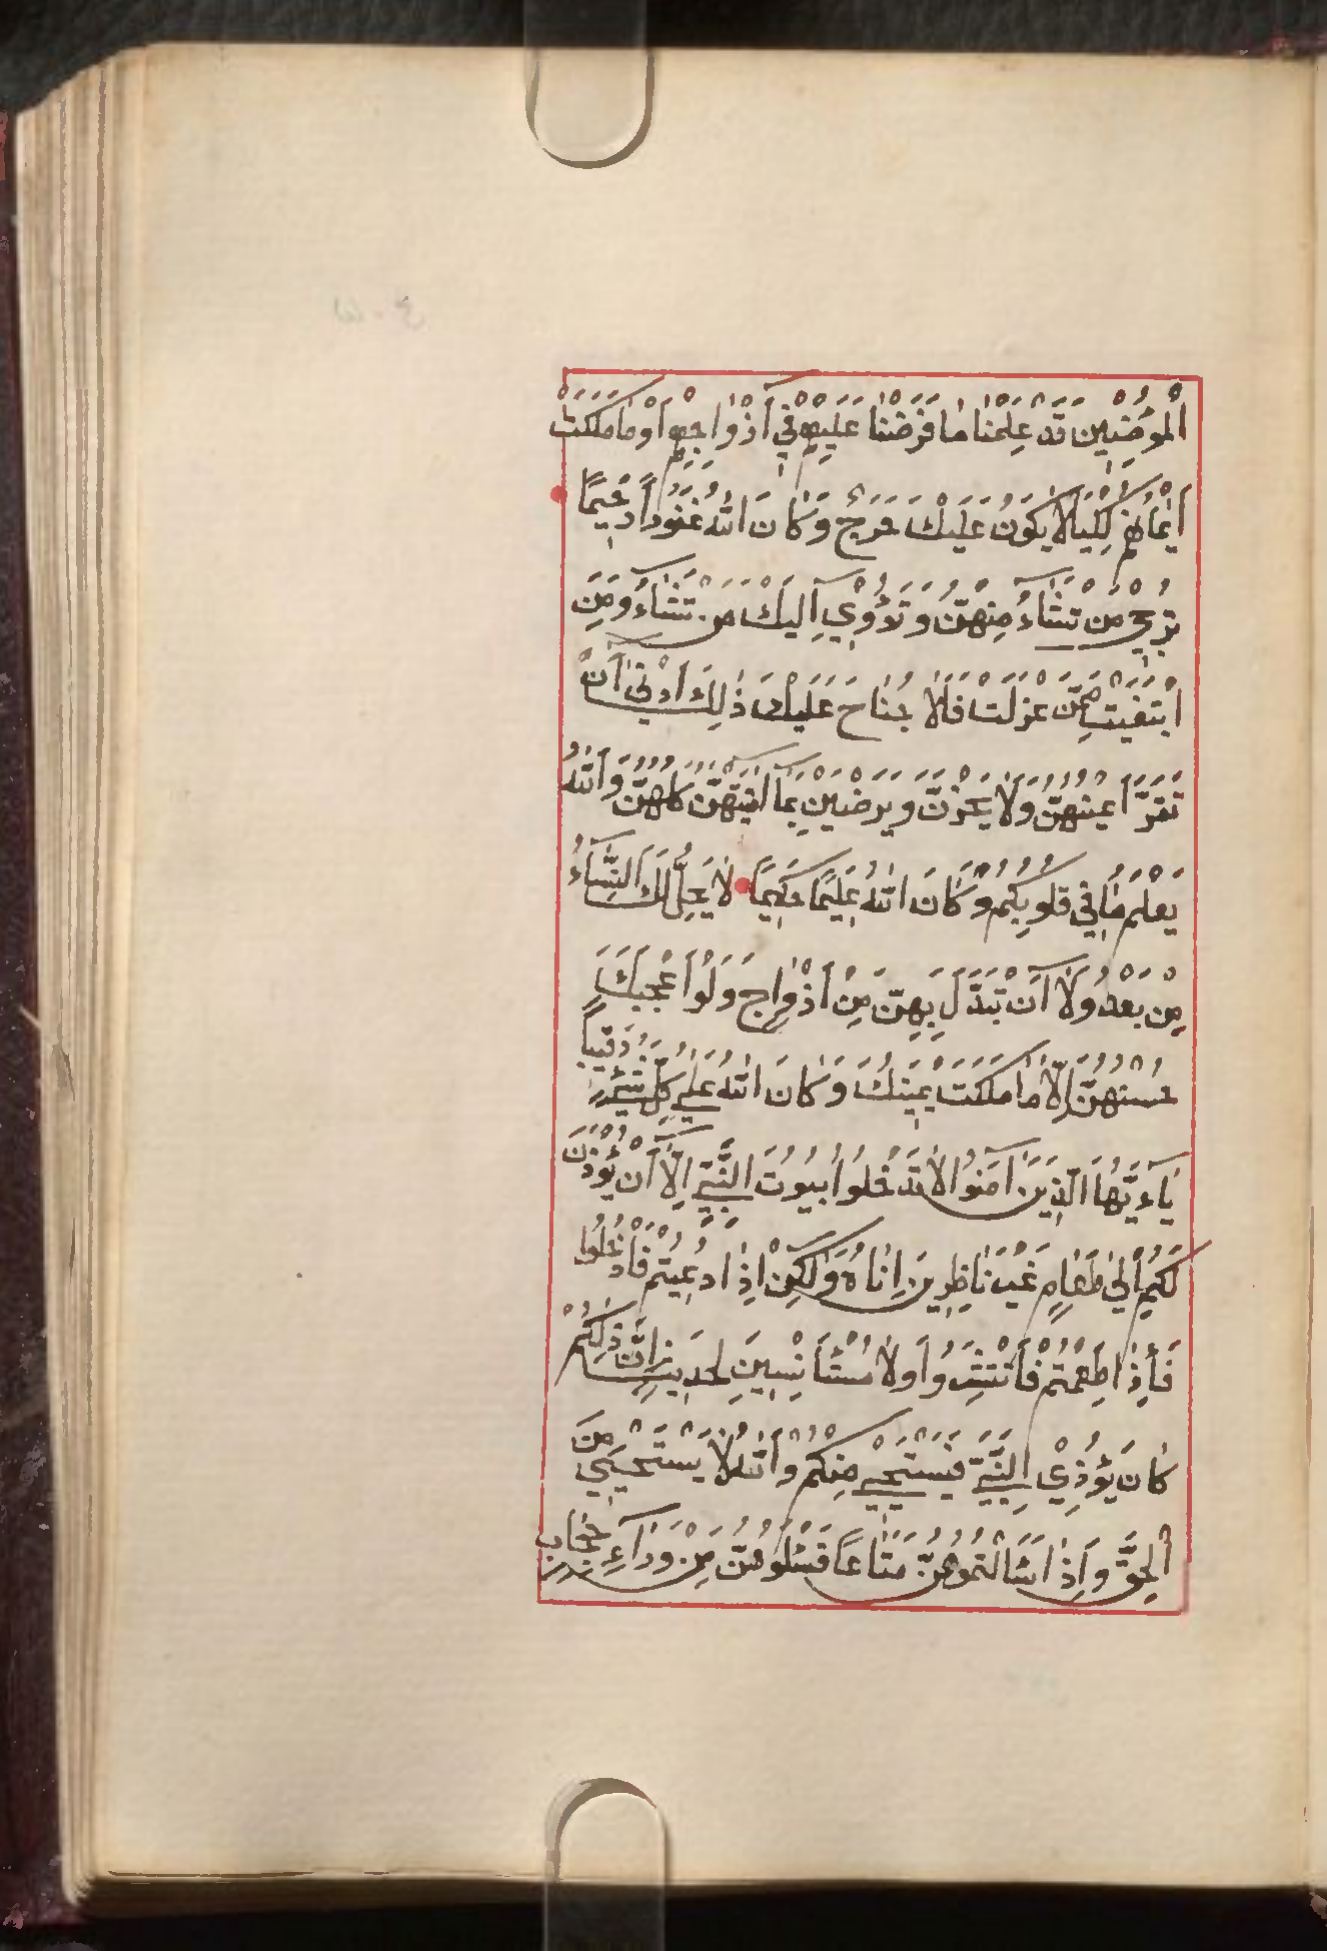 الْمُؤْمِنِينَ قَدْ عَلِمْنَا مَا فَرَضْنَا عَلَيْهِمْ فِي أَزْوَاجِهِمْ أَوْ مَا مَلَكَتْ
أَيْمَانُهُمْ لِكَيْلَا يَكُونَ عَلَيْكَ حَرَجٌ وَكَانَ اللَّهُ غَفُورًا رَحِيمًا
تُرْجِي مَن تَشَاءُ مِنْهُنَّ وَتُؤْوِي إِلَيْكَ مَن تَشَاءُ وَمَنِ
ابْتَغَيْتَ مِمَّنْ عَزَلْتَ فَلَا جُنَاحَ عَلَيْكَ ذَٰلِكَ أَدْنَىٰ أَن
تَقَرَّ أَعْيُنُهُنَّ وَلَا يَحْزَنَّ وَيَرْضَيْنَ بِمَا آتَيْتَهُنَّ كُلُّهُنَّ وَاللَّهُ
يَعْلَمُ مَا فِي قُلُوبِكُمْ وَكَانَ اللَّهُ عَلِيمًا حَكِيمًا لَا يَحِلُّ لَكَ النِّسَاءُ
مِنْ بَعْدُ وَلَا أَنْ تَبَدَّلَ بِهِنَّ مِنْ أَزْوَاجٍ وَلَوْ أَعْجَبَكَ
حُسْنُهُنَّ إِلَّا مَا مَلَكَتْ يَمِينُكَ وَكَانَ اللَّهُ عَلَى كُلِّ شَيْءٍ رَقِيبًا
يَاءَيُّهَا الَّذِينَ آمَنُوا لَا تَدْخُلُوا بُيُوتَ النَّبِيِّ إِلَّا أَنْ يُؤْذَنَ
لَكُمْ إِلَى طَعَامٍ غَيْرَ نَاظِرِينَ إِنَاهُ وَلَكِنْ إِذَا دُعِيتُمْ فَادْخُلُوا
فَإِذَا طَعِمْتُمْ فَانْتَشِرُوا وَلَا مُسْتَأْنِسِينَ لِحَدِيثٍ إِنَّ ذَلِكُمْ
كَانَ يُؤْذِي النَّبِيَّ فَيَسْتَحْيِي مِنْكُمْ وَاللَّهُ لَا يَسْتَحْيِي مِنَ
الْحَقِّ وَإِذَا سَأَلْتُمُوهُنَّ مَتَاعًا فَسْئَلُوهُنَّ مِنْ وَرَاءِ حِجَابٍ